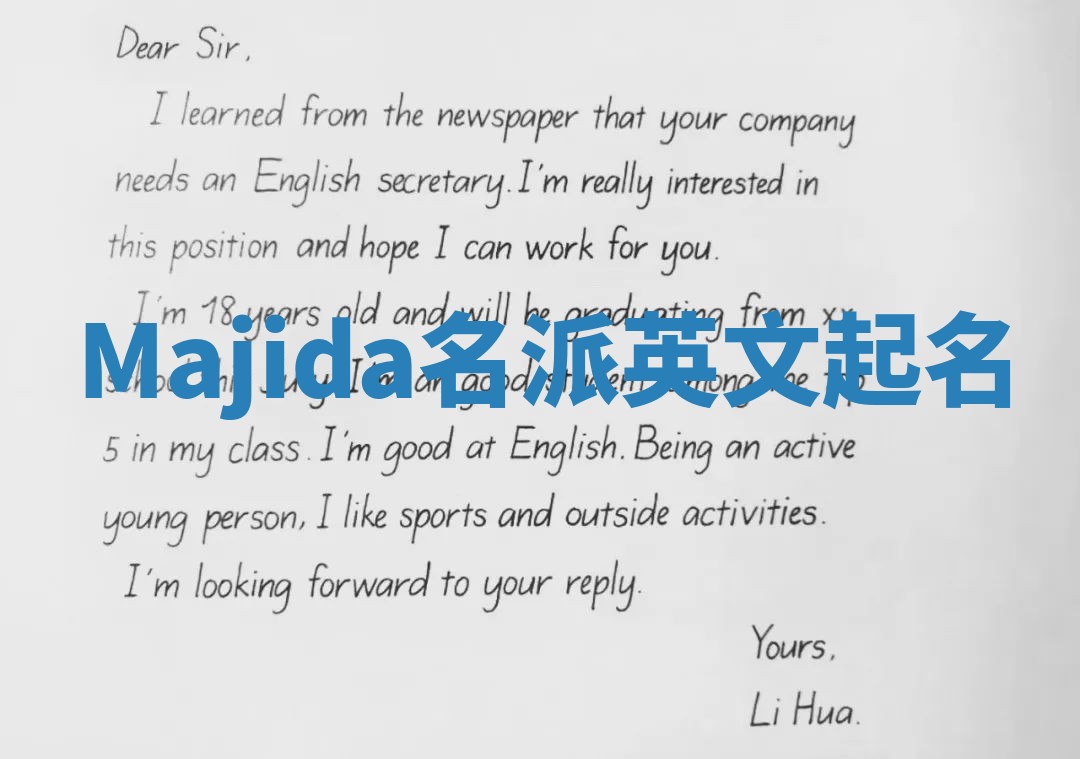 Dear Sir,
I learned from the newspaper that your company
needs an English secretary. I'm really interested in
this position and hope I can work for you.
I'm 18 years old and will be graduating from xx
Majida名派英文起名
5 in my class. I'm good at English. Being an active
young person, I like sports and outside activities.
I'm looking forward to your reply.
Yours,
Li Hua.